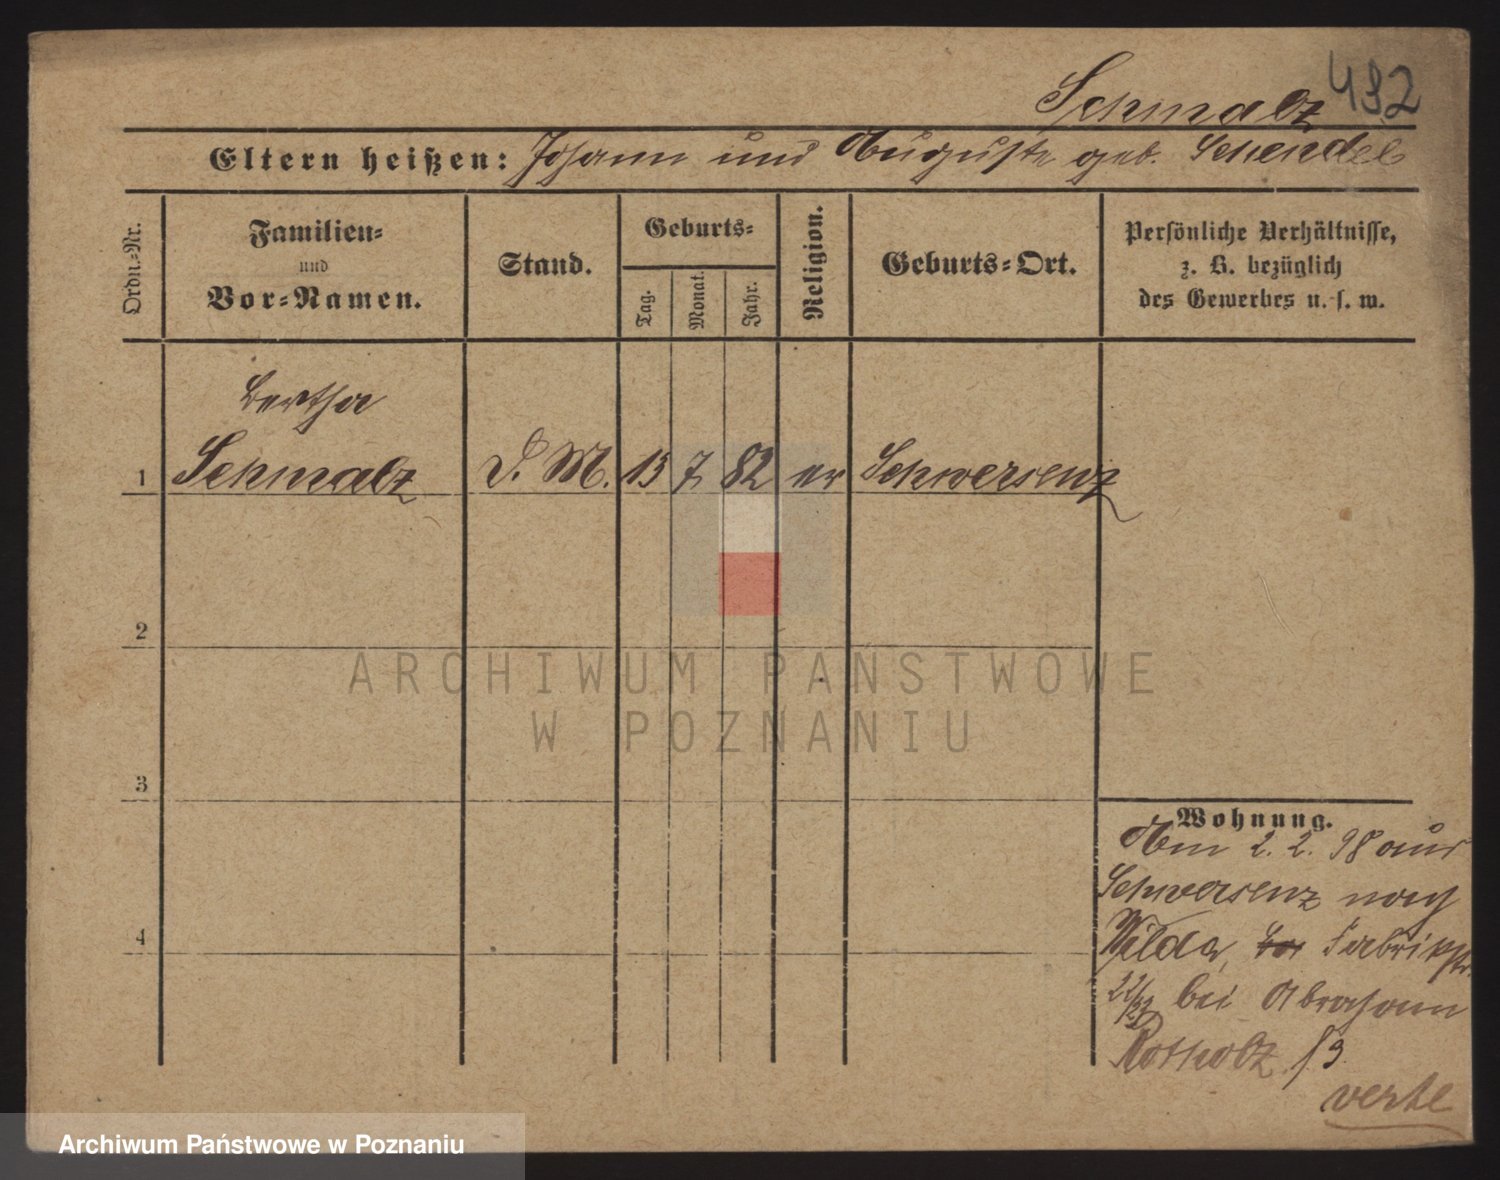 Schmalz 432
Eltern heißen: Johann und Auguste geb. Schendel
Ordn.-Nr.
Familien-
und
Vor-Namen.
Stand.
Geburts-
Tag.
Monat.
Jahr.
Religion.
Geburts-Ort.
Persönliche Verhältnisse,
z. B. bezüglich
des Gewerbes u. s. w.
Bertha
1 Schmalz D. M. 15 7 82 ev Schwersenz
2
3
4
ARCHIWUM PAŃSTWOWE
W POZNANIU
Wohnung.
Am 2. 2. 98 aus
Schwersenz nach
Wilda, Fabrikstr.
bei Abraham
Rothholz
verte
Archiwum Państwowe w Poznaniu